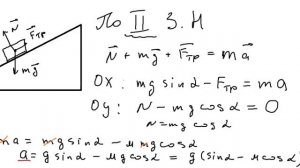 По II З.Н
N⃗ Fтр
mg⃗
N⃗ + mg⃗ + F⃗тр = ma⃗
OX: mg sinα - Fтр = ma
OY: N - mg cosα = 0
N = mg cosα
ma = mg sinα - μ mg cosα
a = g sinα - μg cosα = g (sinα - μ cosα)